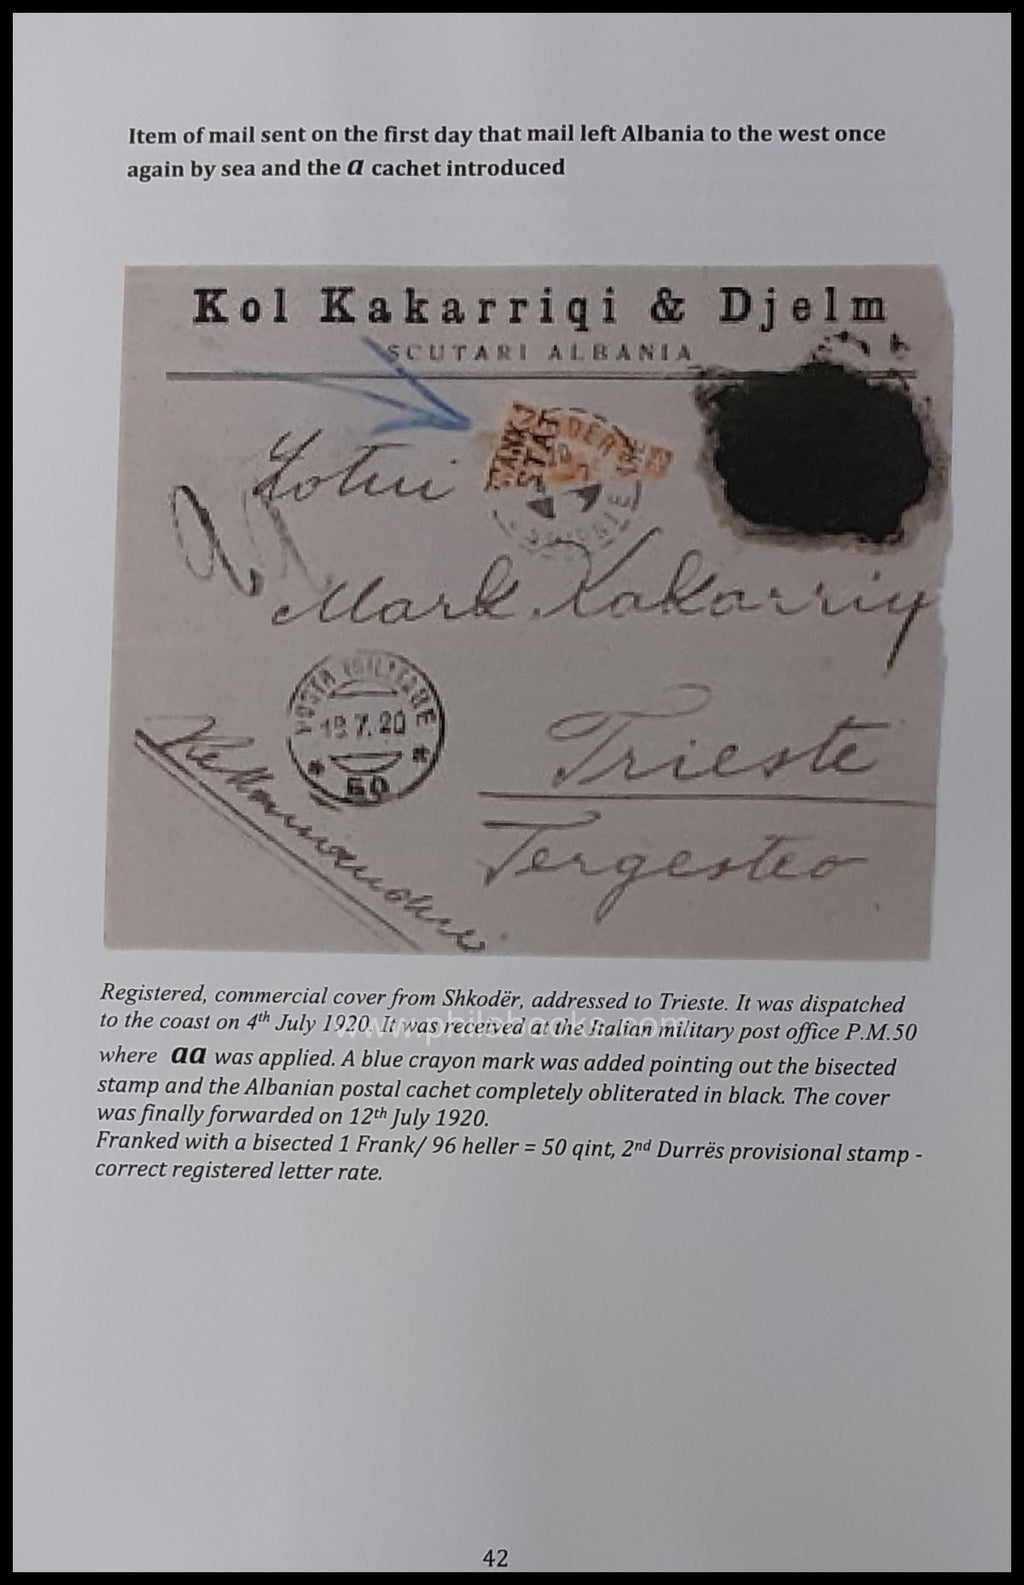 Item of mail sent on the first day that mail left Albania to the west once
again by sea and the a cachet introduced
Kol Kakarriqi & Djelm
SCUTARI ALBANIA
Zotni
Mark Kakarriq
POSTA MILITARE
Trieste
Tergesteo
Registered, commercial cover from Shkodër, addressed to Trieste. It was dispatched
to the coast on 4th July 1920. It was received at the Italian military post office P.M.50
www.philabooks.com
where aa was applied. A blue crayon mark was added pointing out the bisected
stamp and the Albanian postal cachet completely obliterated in black. The cover
was finally forwarded on 12th July 1920.
Franked with a bisected 1 Frank/ 96 heller = 50 qint, 2nd Durrës provisional stamp -
correct registered letter rate.
42